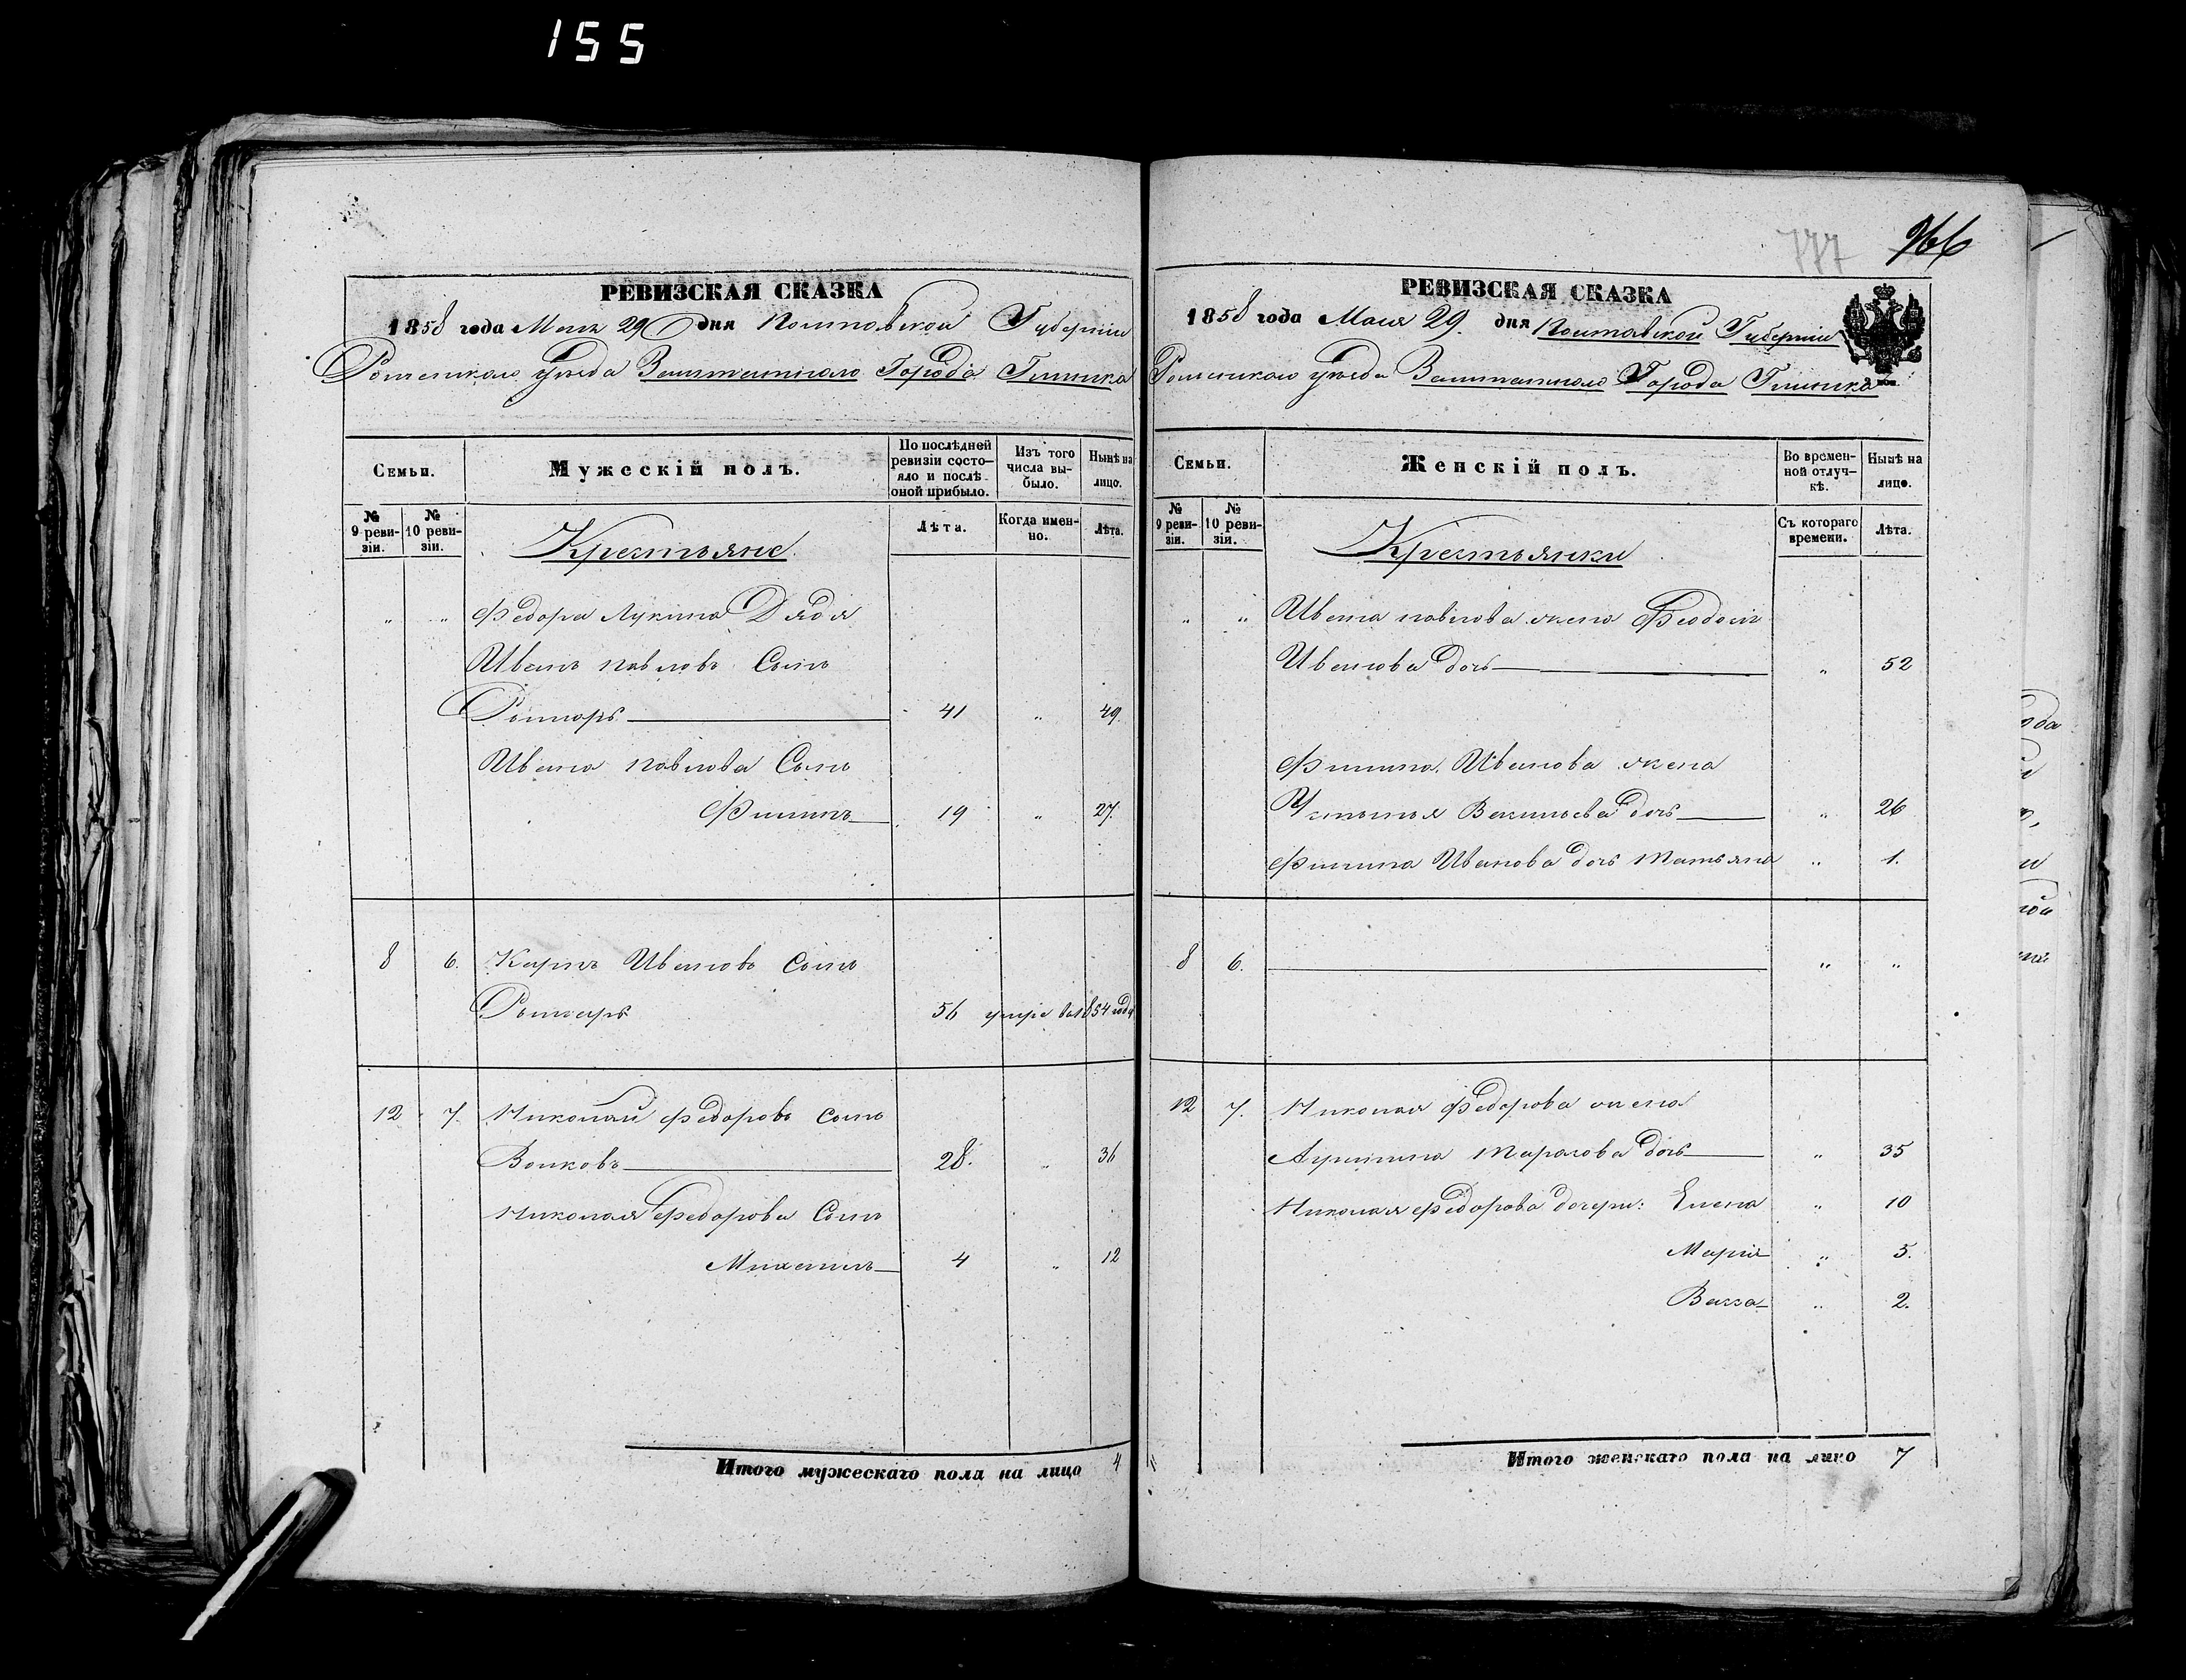 155
966
777
РЕВИЗСКАЯ СКАЗКА
1858 года Мая 29 дня Полтавской Губерніи
Роменскаго уѣзда Заштатнаго Города Глинска
Семьи.
Мужескій полъ.
По послѣдней ревизіи состо-
яло и послѣ
оной прибыло.
Изъ того
числа вы-
было.
Нынѣ на
лицо.
№
9 реви-
зіи.
№
10 реви-
зіи.
Крестьяне
Лѣта.
Когда имен-
но.
Лѣта.
„ „ Федора Лукина Дядя
Иванъ павловъ Сынъ
41 „ 49.
Ивана павлова Сынъ
Филипъ 19 „ 27.
8 6. Карпъ Ивановъ Сынъ
56 умре въ 1854 году
12 7. Николай федоровъ сынъ
Волковъ 28. „ 36
Николая Федорова Сынъ
Михаилъ 4 „ 12
Итого мужескаго пола на лицо 4
РЕВИЗСКАЯ СКАЗКА
1858 года Мая 29. дня Полтавской Губерніи
Роменскаго уѣзда Заштатнаго Города Глинска
Семьи.
Женскій полъ.
Во времен-
ной отлуч-
кѣ.
Нынѣ на
лицо.
№
9 реви-
зіи.
№
10 реви-
зіи.
Крестьянки
Съ котораго
времени.
Лѣта.
„ „ Ивана павлова жена Феодосія
Иванова дочь „ 52
Филипа Иванова жена
Устинья Васильева дочь „ 26
Филипа Иванова дочь татьяна „ 1.
8 6. „ „
12 7. Николая федорова жена
Агрипина тарасова дочь „ 35
Николая федорова дочери: Елена „ 10
Марія „ 5.
Васса „ 2.
Итого женскаго пола на лицо 7